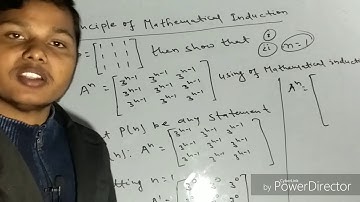 nciple of Mathematical Induction
= [1 1 1 1 1 1 1 1 1] then show that (i) (ii) n=1
Aⁿ = [3ⁿ⁻¹ 3ⁿ⁻¹ 3ⁿ⁻¹ 3ⁿ⁻¹ 3ⁿ⁻¹ 3ⁿ⁻¹ 3ⁿ⁻¹ 3ⁿ⁻¹ 3ⁿ⁻¹] using of Mathematical inductio
Aⁿ = [
t P(n) be any statement
(n): Aⁿ = [3ⁿ⁻¹ 3ⁿ⁻¹ 3ⁿ⁻¹ 3ⁿ⁻¹ 3ⁿ⁻¹ 3ⁿ⁻¹ 3ⁿ⁻¹ 3ⁿ⁻¹ 3ⁿ⁻¹]
tting n=1
A¹ = [3⁰ 3⁰
CyberLink
by PowerDirector